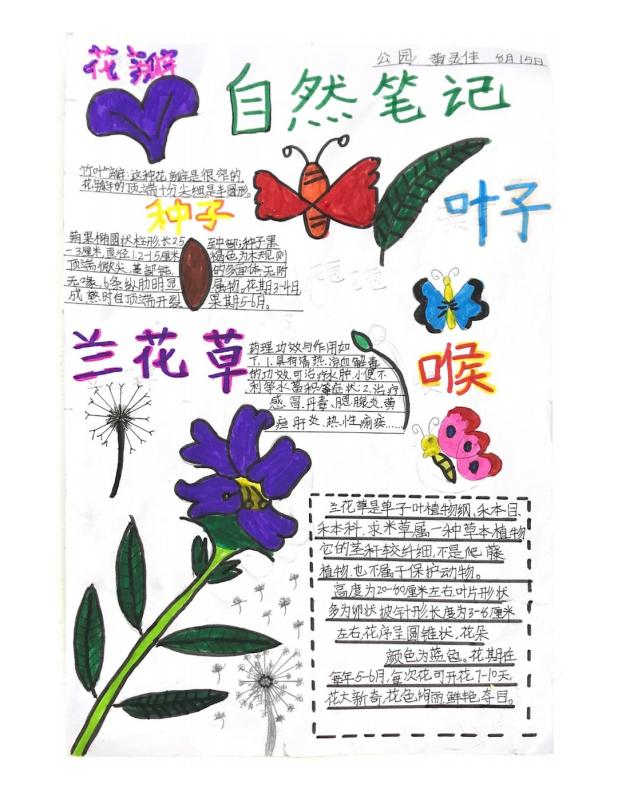 花瓣
公园 黄灵佳 8月15日
自然笔记
竹叶瓣:这种花瓣是很窄的,
花瓣的顶端十分尖细是半圆形.
种子
蒴果椭圆状柱形,长2.5
-3厘米,直径1.2-1.5厘米
顶端微尖,基部钝
无喙,6条纵肋明显
成熟时自顶端开裂
至中部;种子黑
褐色为不规则
的多面体,无附
属物。花期3-4月,
果期5-6月。
叶子
兰花草
药理功效与作用如
下.1.具有清热.泻血解毒
的功效,可治疗水肿,小便不
利等水蓄积蓄症状:2.治疗
感冒.丹毒.腮腺炎.黄
疸肝炎.热性痢疾……
喉
兰花草是单子叶植物纲,禾本目
禾本科,求米草属一种草本植物
它的茎秆较纤细,不是爬藤
植物,也不属于保护动物。
高度为20-60厘米左右,叶片形状
多为卵状披针形,长度为3-6厘米
左右,花序呈圆锥状,花朵
颜色为蓝色。花期在
每年5-6月,每次花可开花7-10天,
花大新奇,花色绚丽,鲜艳夺目。